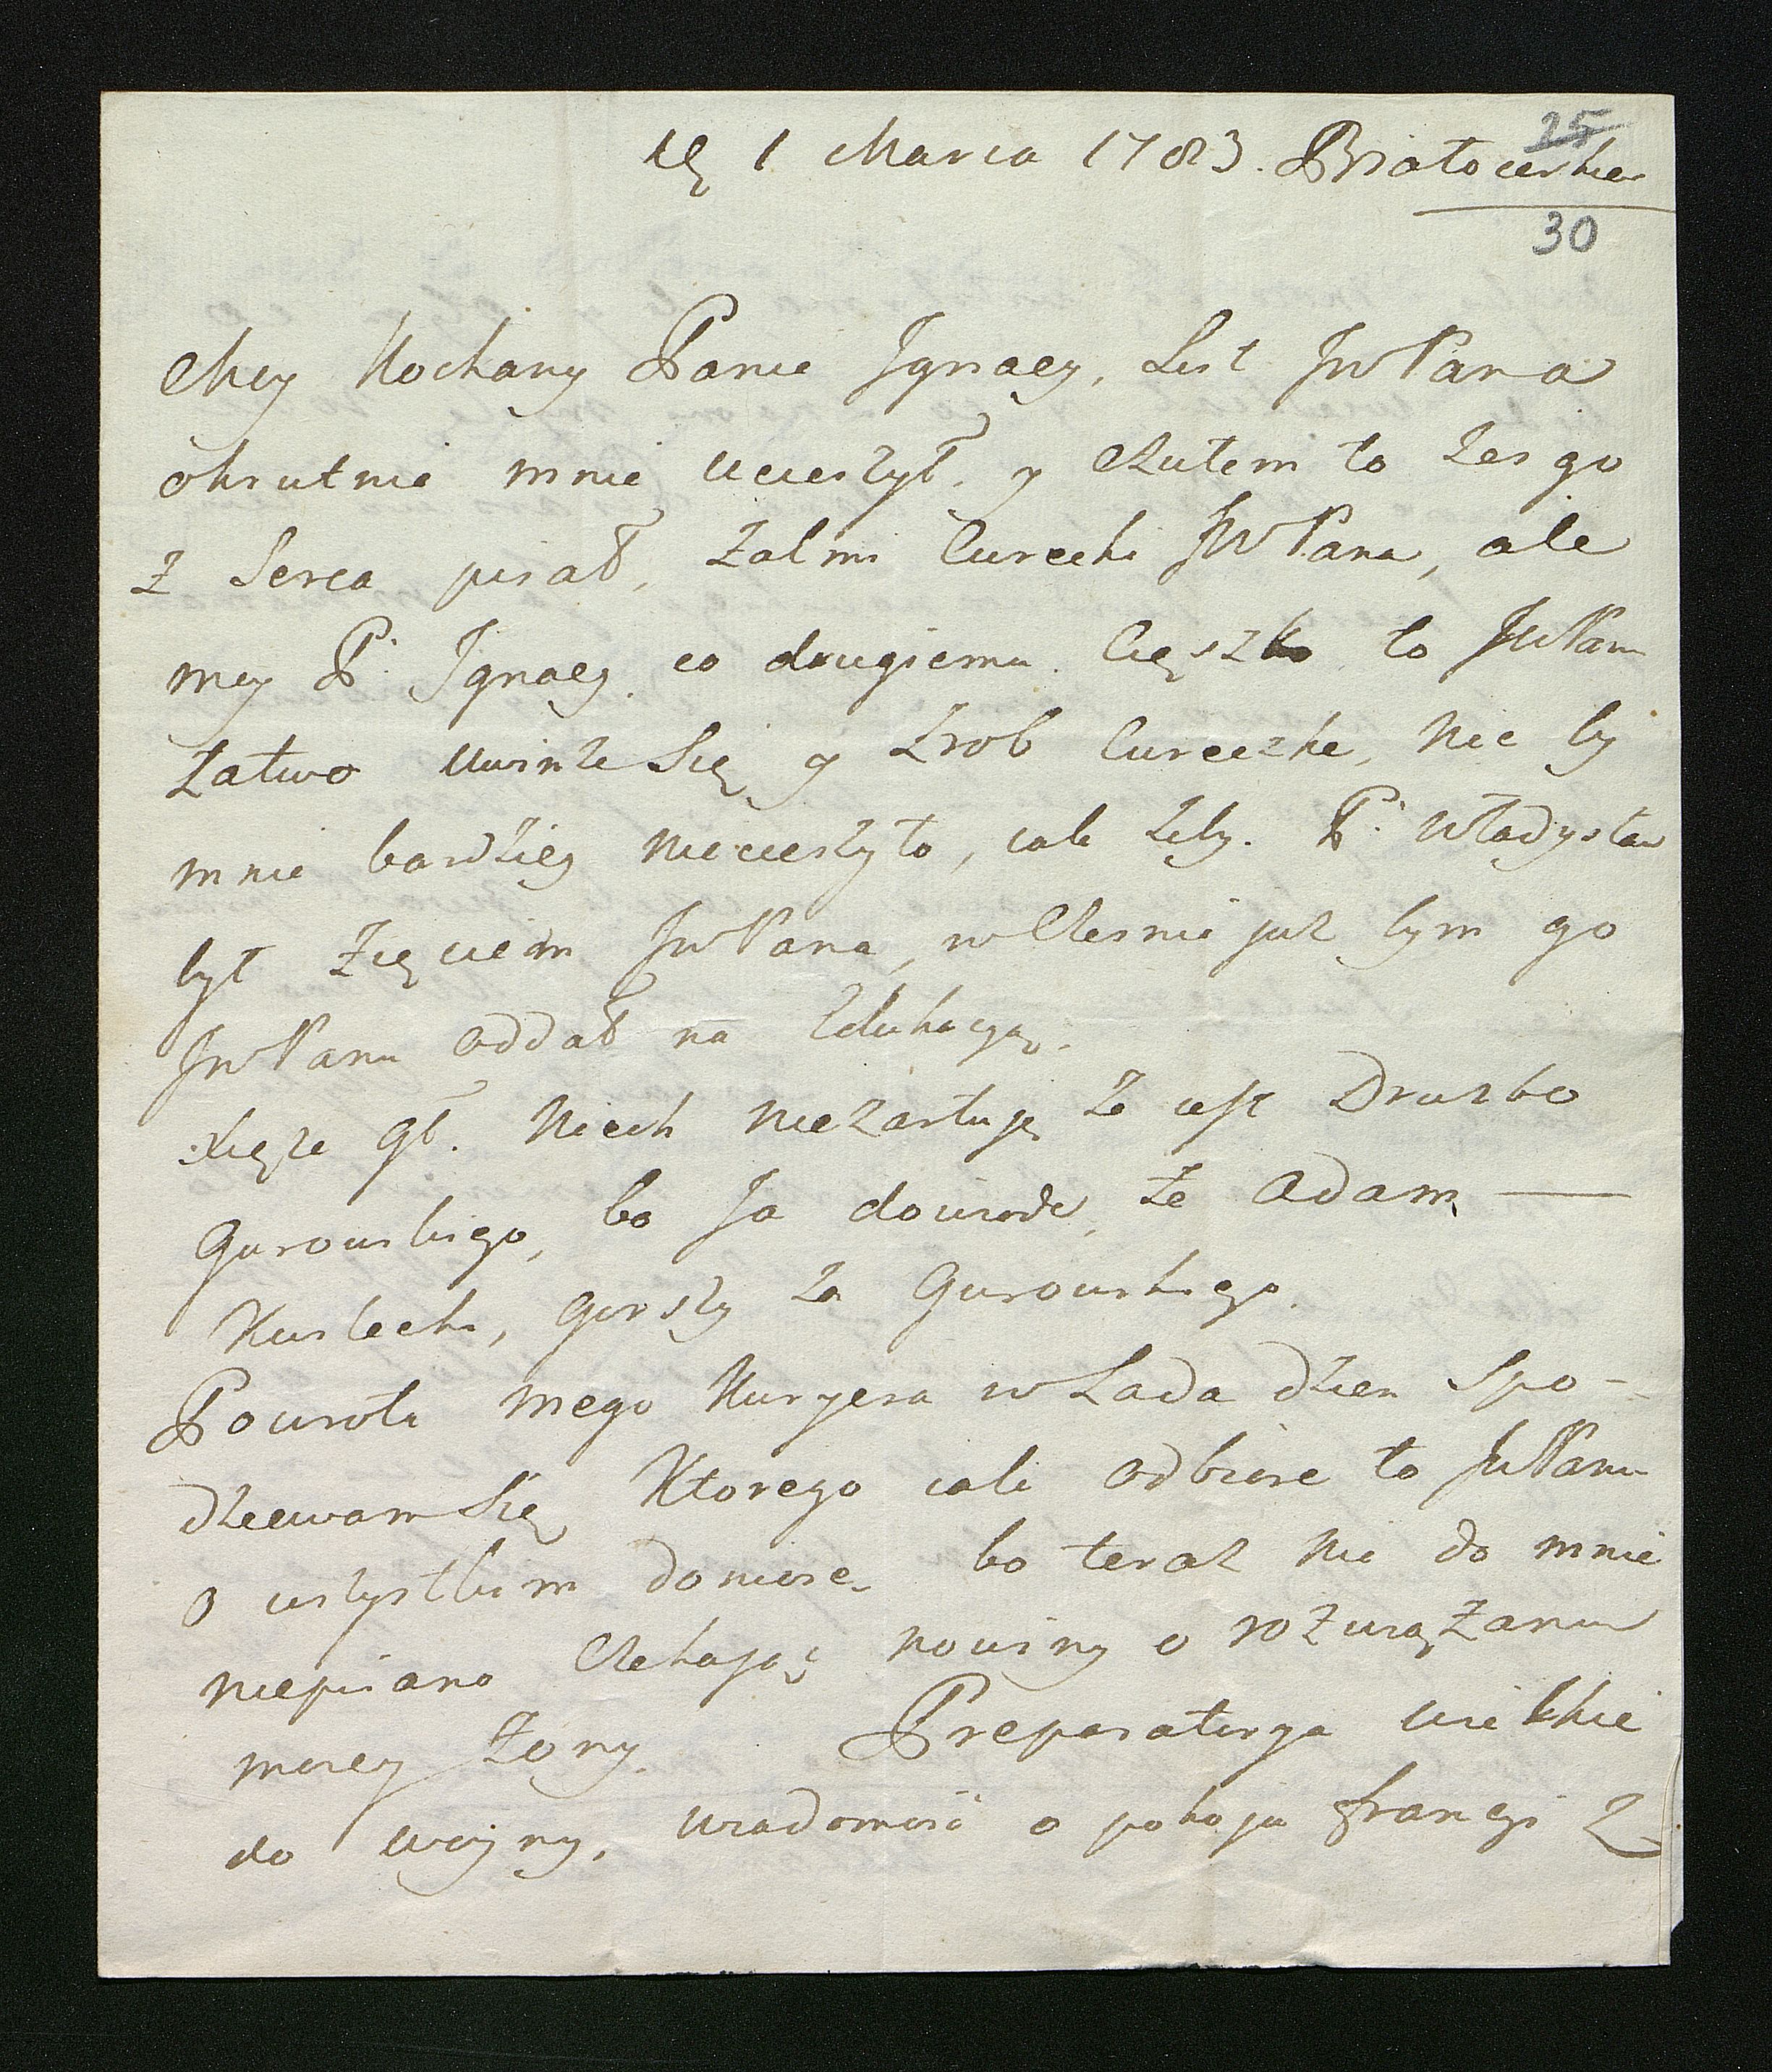 25
1 Marca 1783. Białocerkiew
30
Moy Kochany Panie Jgnacy, List JWPana
okrutnie mnie ucieszył, y czułem to żeś go
z Serca pisał, żal mi Curecki JWPana, ale
moy P. Jgnacy. co drugiemu Cięszko to JWPanu
Łatwo uwinze Się y Zrob Cureczke, nic by
mnie bardziey nieucieszyło, iak żeby. P. Władysław
był Zięciem JWPana, wcześnie już bym go
JWPanu oddał na Edukacyą.
Xięże Gł. Niech nieżartuje że iest Druzbo
Gurowskiego, bo Ja dowiode, że Adam —
Kusecki, gorszy za Gurowskiego.
Powrotu mego Kuryera w Lada dzien Spo-
dziewam Się Ktorego iak odbiore to JWPanu
o wszystkim doniose, bo teraz nic do mnie
niepisano Czekając nowiny o rozwiązaniu
moiey Żony. Preparatorya wielkie
do woyny, wiadomość o pokoju Francyi Z